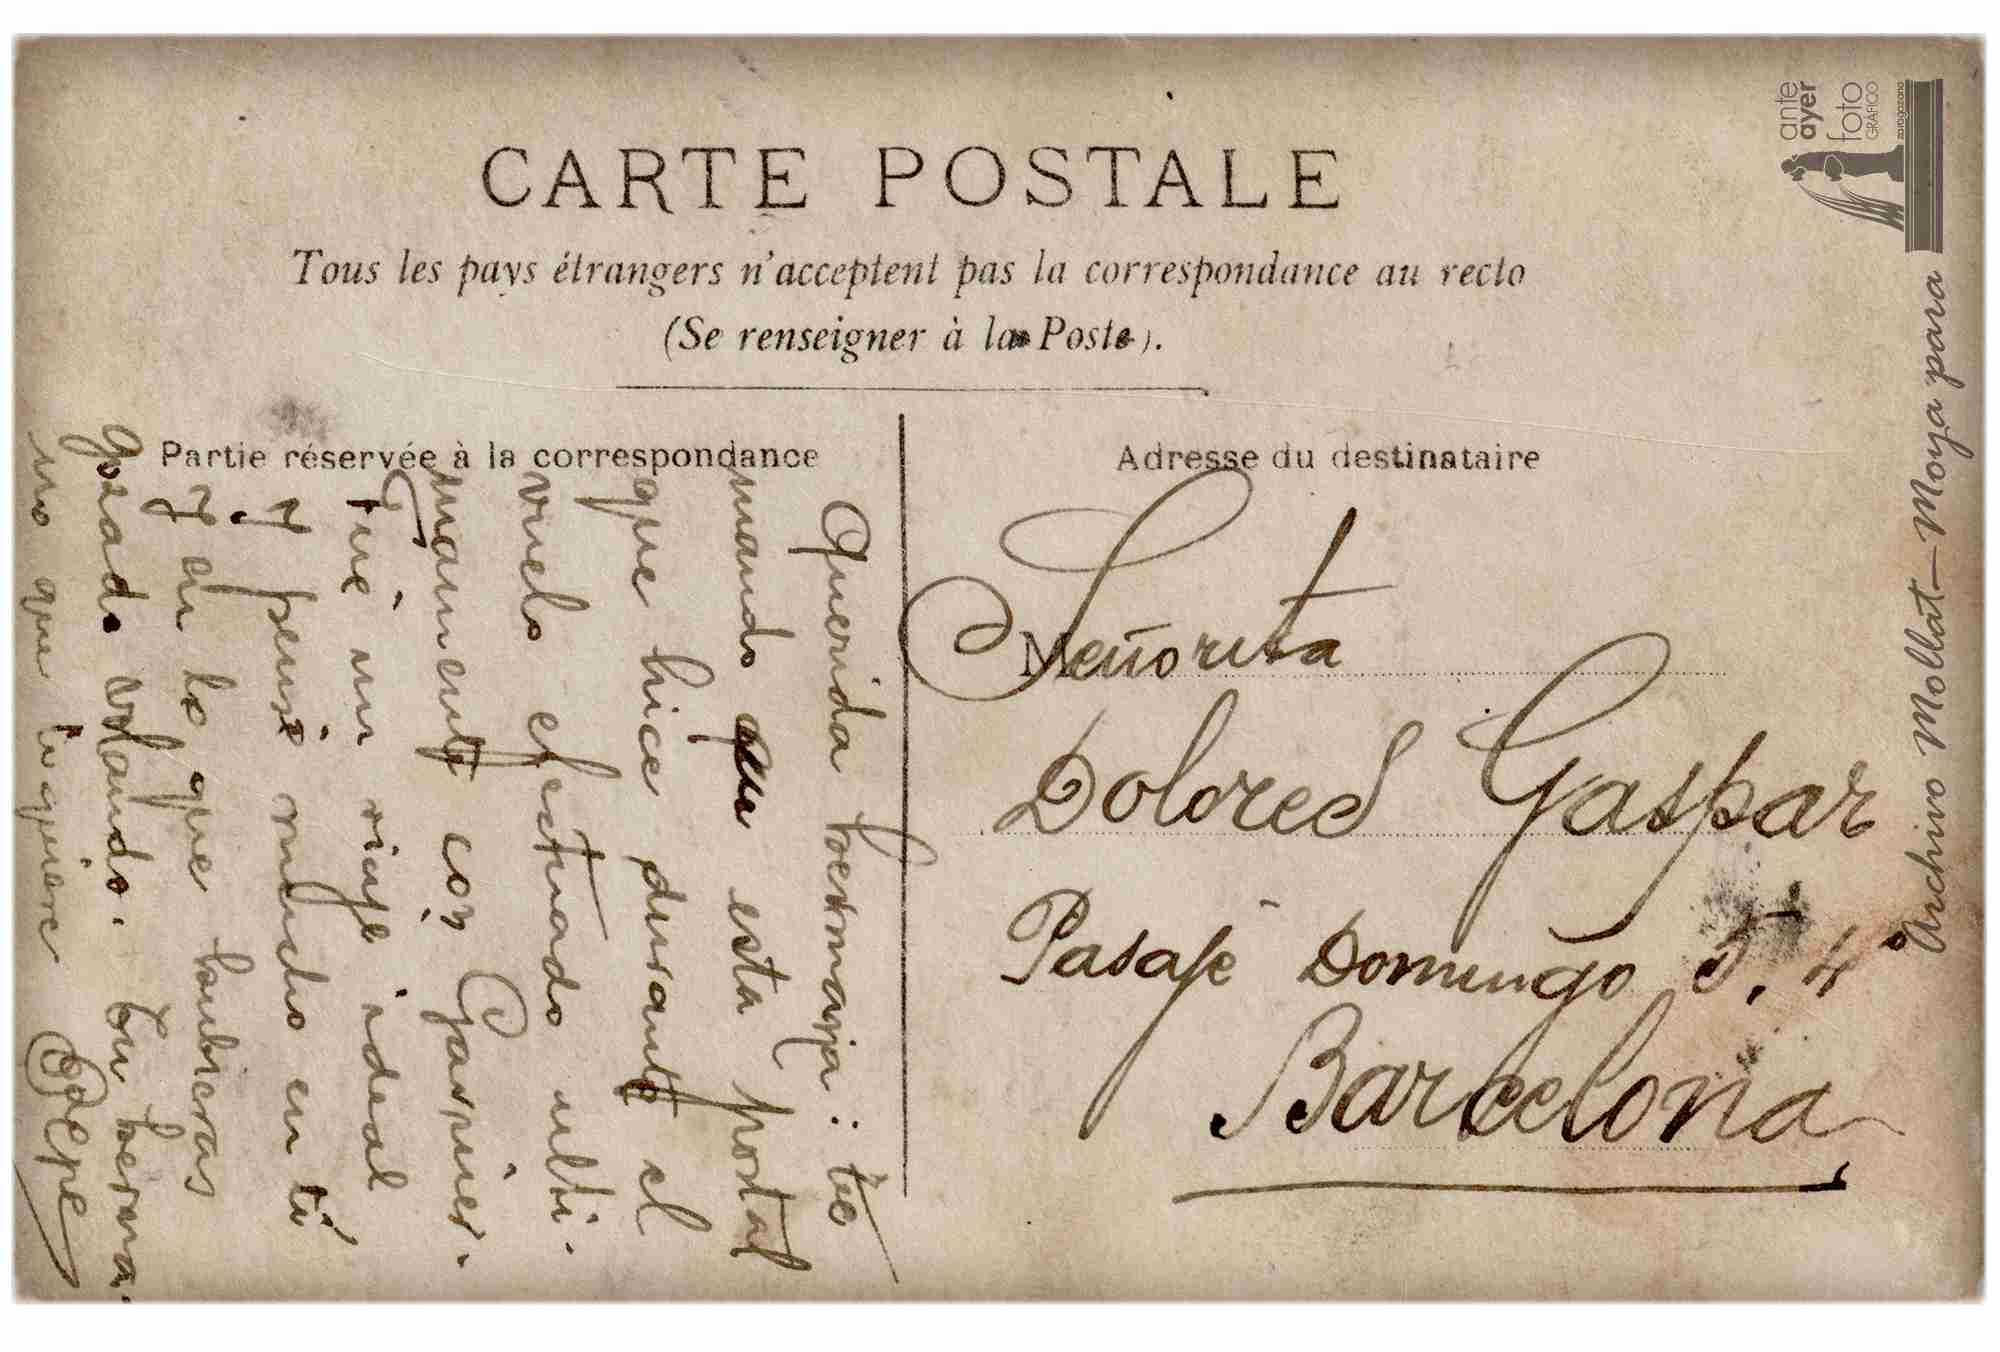 CARTE POSTALE
Tous les pays étrangers n'acceptent pas la correspondance au recto
(Se renseigner à la Poste).
Partie réservée à la correspondance
Querida hermana: te
mando que esta postal
que hice durante el
vuelo efectuado ulti-
mamente con Garnier.
Fué un viaje ideal
y pensé mucho en tí
y en lo que hubieras
gozado volando. Tu herma-
no que te quiere Pepe
Adresse du destinataire
M
Señorita
Dolores Gaspar
Pasaje Domingo 5. 4º
Barcelona
ante
ayer
foto
GRÁFICO
zaragozano
Archivo Mollat-Moya para